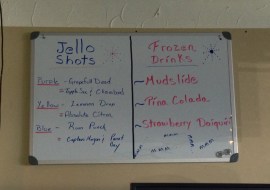 Jello
Shots
Purple - Grapefruit
Yellow - Lemon Drop
= Absolute Citron
Blue - Rum Punch
= Captain Morgan & Parrot
Bay
Frozen
Drinks
~ Mudslide
~ Pina Colada
~ Strawberry Daiquiri